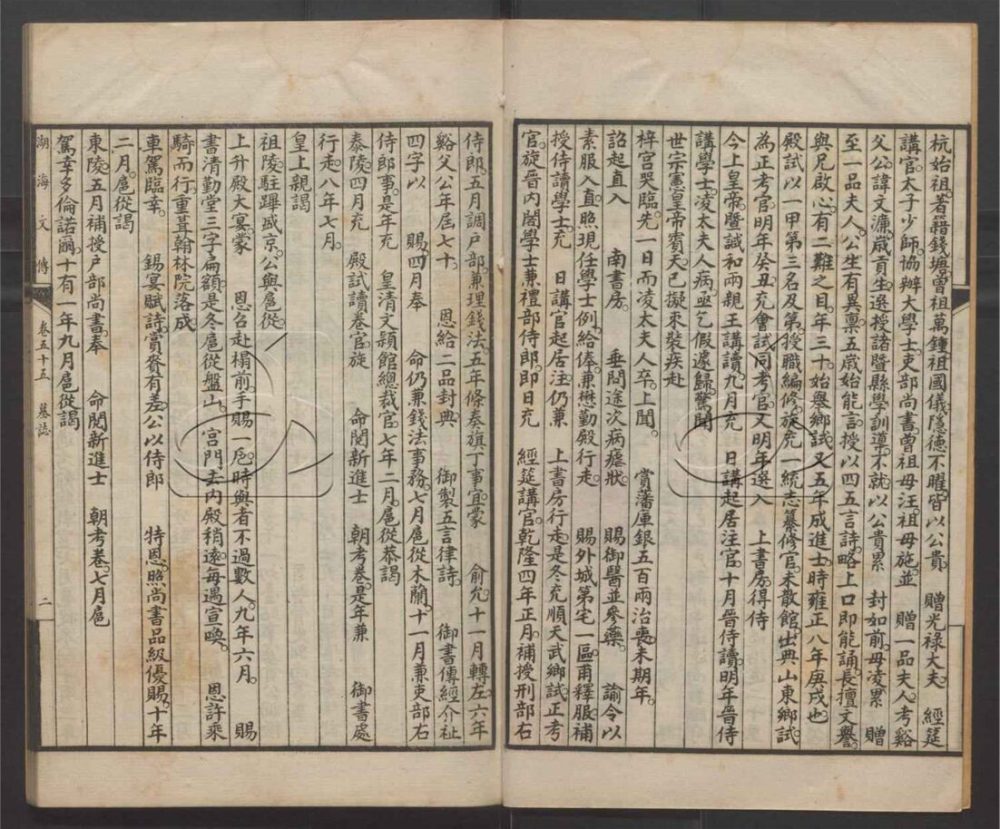 杭始祖。著籍錢塘。曾祖萬鍾。祖國儀。隱德不曜。皆以公貴　贈光祿大夫　經筵
講官。太子少師。協辦大學士。吏部尚書。曾祖母汪。祖母施。並　贈一品夫人。考谿
父公。諱文濂。歲貢生。選授諸暨縣學訓導。不就。以公貴。累　封如前。母凌。累　贈
至一品夫人。公生有異稟。五歲始能言。授以四五言詩。略上口即能誦。長擅文譽。
與兄啟心。有二難之目。年三十。始舉鄉試。又五年成進士。時雍正八年庚戌也
殿試以一甲第三名及第。授職編修。旋充一統志纂修官。未散館。出典山東鄉試
為正考官。明年癸丑。充會試同考官。又明年選入　上書房。得侍
今上皇帝暨誠和兩親王講讀。九月充　日講起居注官。十月晉侍讀。明年晉侍
講學士。凌太夫人病亟。乞假遽歸。驚聞
世宗憲皇帝賓天。已擬來裝疾赴
梓宮哭臨。先一日而凌太夫人卒。上聞。　賞藩庫銀五百兩治喪。未期年。
詔起直入　南書房。　垂問途次病瘧狀　賜御醫並參藥。　諭令以
素服入直。照現任學士例給俸。兼懋勤殿行走。　賜外城第宅一區。甫釋服。補
授侍讀學士。充　日講官起居注。仍兼　上書房行走。是冬充順天武鄉試正考
官。旋晉內閣學士兼禮部侍郎。即日充　經筵講官。乾隆四年正月。補授刑部右
侍郎。五月調戶部。兼理錢法。五年條奏旗丁事宜。蒙　俞允。十一月轉左。六年
谿父公年屆七十。　恩給二品封典　御製五言律詩。　御書傳經介祉
四字以　賜。四月奉　命仍兼錢法事務。七月扈從木蘭。十一月兼吏部右
侍郎事。是年充　皇清文穎館總裁官。七年二月。扈從恭謁
泰陵。四月充　殿試讀卷官。旋　命閱新進士　朝考卷。是年兼　御書處
行走。八年七月。
皇上親謁
祖陵。駐蹕盛京。公與扈從。
上升殿大宴。蒙　恩召赴榻前。手賜一卮。時與者不過數人。九年六月。　賜
書清勤堂三字扁額。是冬扈從盤山。　宮門去內殿稍遠。每遇宣喚。　恩許乘
騎而行。重葺翰林院落成
車駕臨幸。　錫宴賦詩。賞賚有差。公以侍郎　特恩。照尚書品級優賜。十年
二月。扈從謁
東陵。五月補授戶部尚書。奉　命閱新進士　朝考卷。七月扈
駕幸多倫諾爾。十有一年九月。扈從謁
湖海文傳　卷五十五　墓誌　二